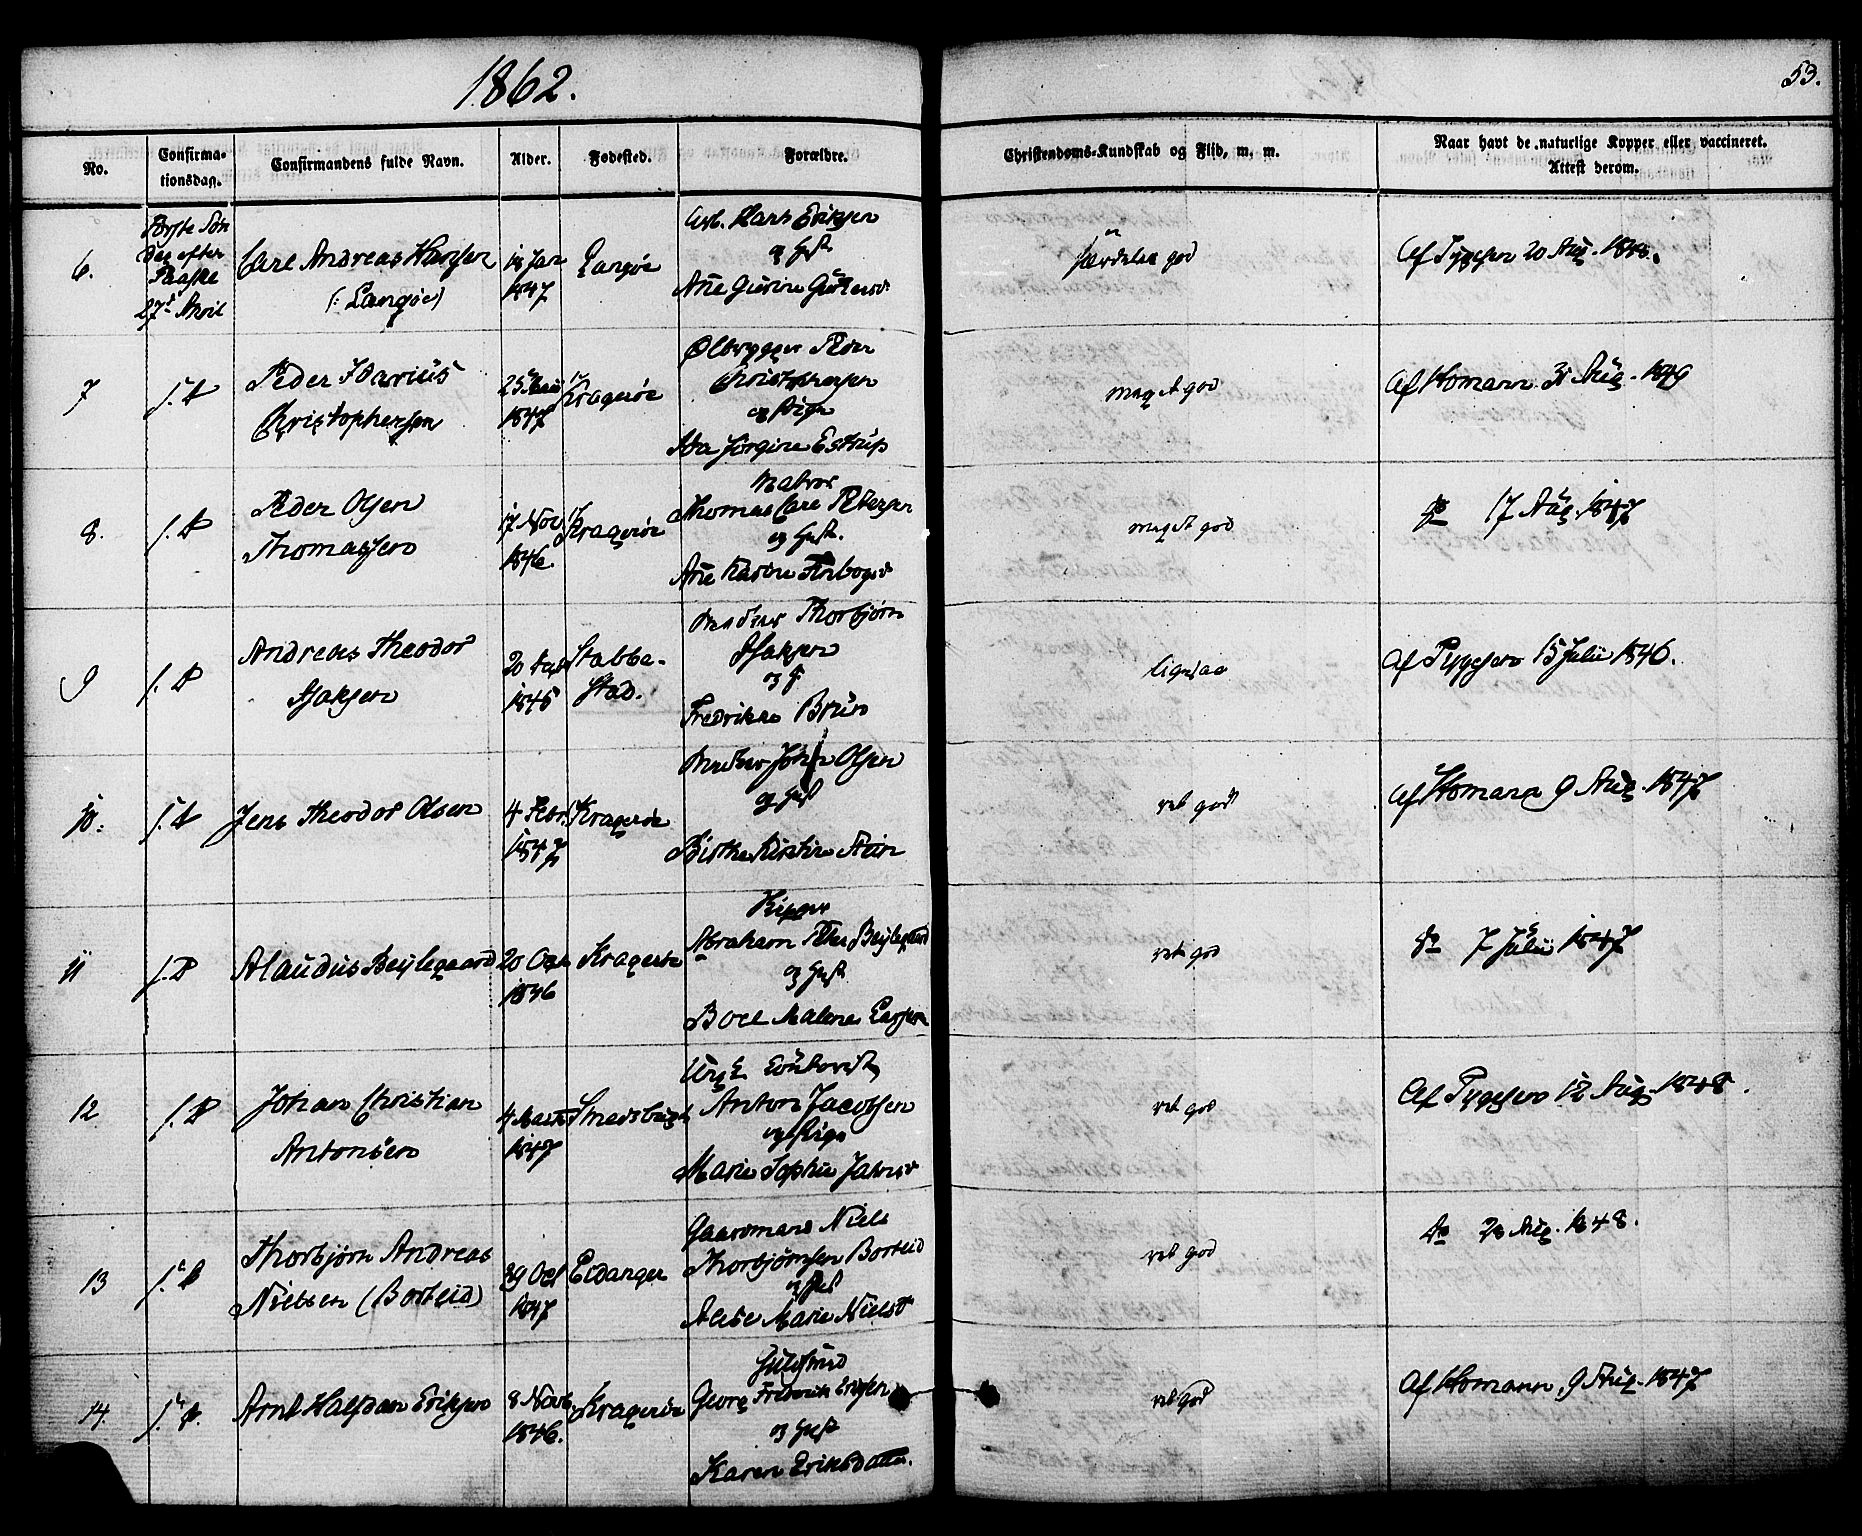 1862.
53.
No.
Confirma-
tionsdag.
Confirmandens fulde Navn.
Alder.
Fødested.
Forældre.
Christendoms-Kundskab og Flid, m. m.
Naar havt de naturlige Kopper eller vaccineret.
Attest derom.
6.
Første Søn
dag efter
Paaske
27d April
Carl Andreas Hansen
(: Langøe)
18 Jan
1847
Langøe
Arb. Hans Eriksen
og Hust
Ane Gurine
særdeles god
Af Tygesen 20 Aug. 1848.
7
s. D
Peder Idarius
Christophersen
1847
Kragerøe
Ølbrygger Peder
Christophersen
og Pige
Ida Jørgine Estrup
meget god
Af Homann 31 Aug. 1849
8.
s. D
Peder Olsen
Thomassen
17 Nov
1846.
Kragerøe
Matros
Thomas Carl Petersen
og Hust.
Ane Karine
meget god
do 17 Aug. 1847
9
s. D
Andreas Theodor
Isaksen
20
1845
Stabbe-
stad.
Thorbjørn
Isaksen
og H
Fredrikke Brun
ligesaa
Af Tygesen 15 Julii 1846.
10.
s. D
Jens Theodor Olsen
4 Febr.
1847
Kragerøe
John Olsen
og Hust
Birthe Kirstine
ret god
Af Homann 9 Aug. 1847
11
s. D
Claudius Beylegaard
20
1846
Kragerøe
Abraham Peter Beylegaard
og Hust
Boel Malene Larsen
ret god
do 7 Julii 1847
12
s. D
Johan Christian
Antonsen
4
1847
Anton Jacobsen
og Pige
Marie Sophie
ret god
Af Tygesen 12 Aug. 1848.
13
s. D
Thorbjørn Andreas
Nielsen (Borteid)
29 Oct
1847
Eidanger
Gaardmand Niels
Thorbjørnsen Borteid
og Hust
Marie Nielsd
ret god
do Aug. 1848.
14.
s. D.
Arnt Halfdan Eriksen
8 Novb.
1846.
Kragerøe
Guldsmed
Georg Frederik Eriksen
og Hust
Karen Eriksdatter.
ret god
Af Homann 9 Aug. 1847